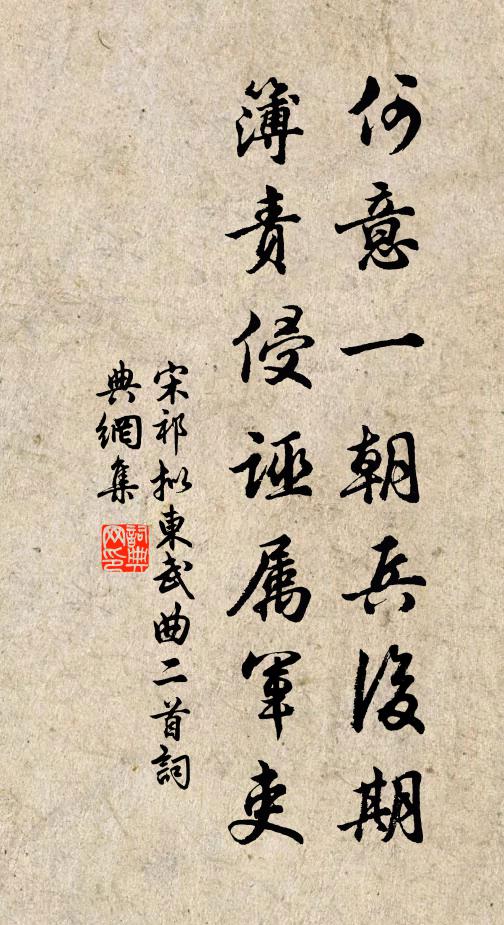 何意一朝兵後期
簿責侵誣属軍吏
宋祁拟東武曲二首詞
典網集
詞典网印